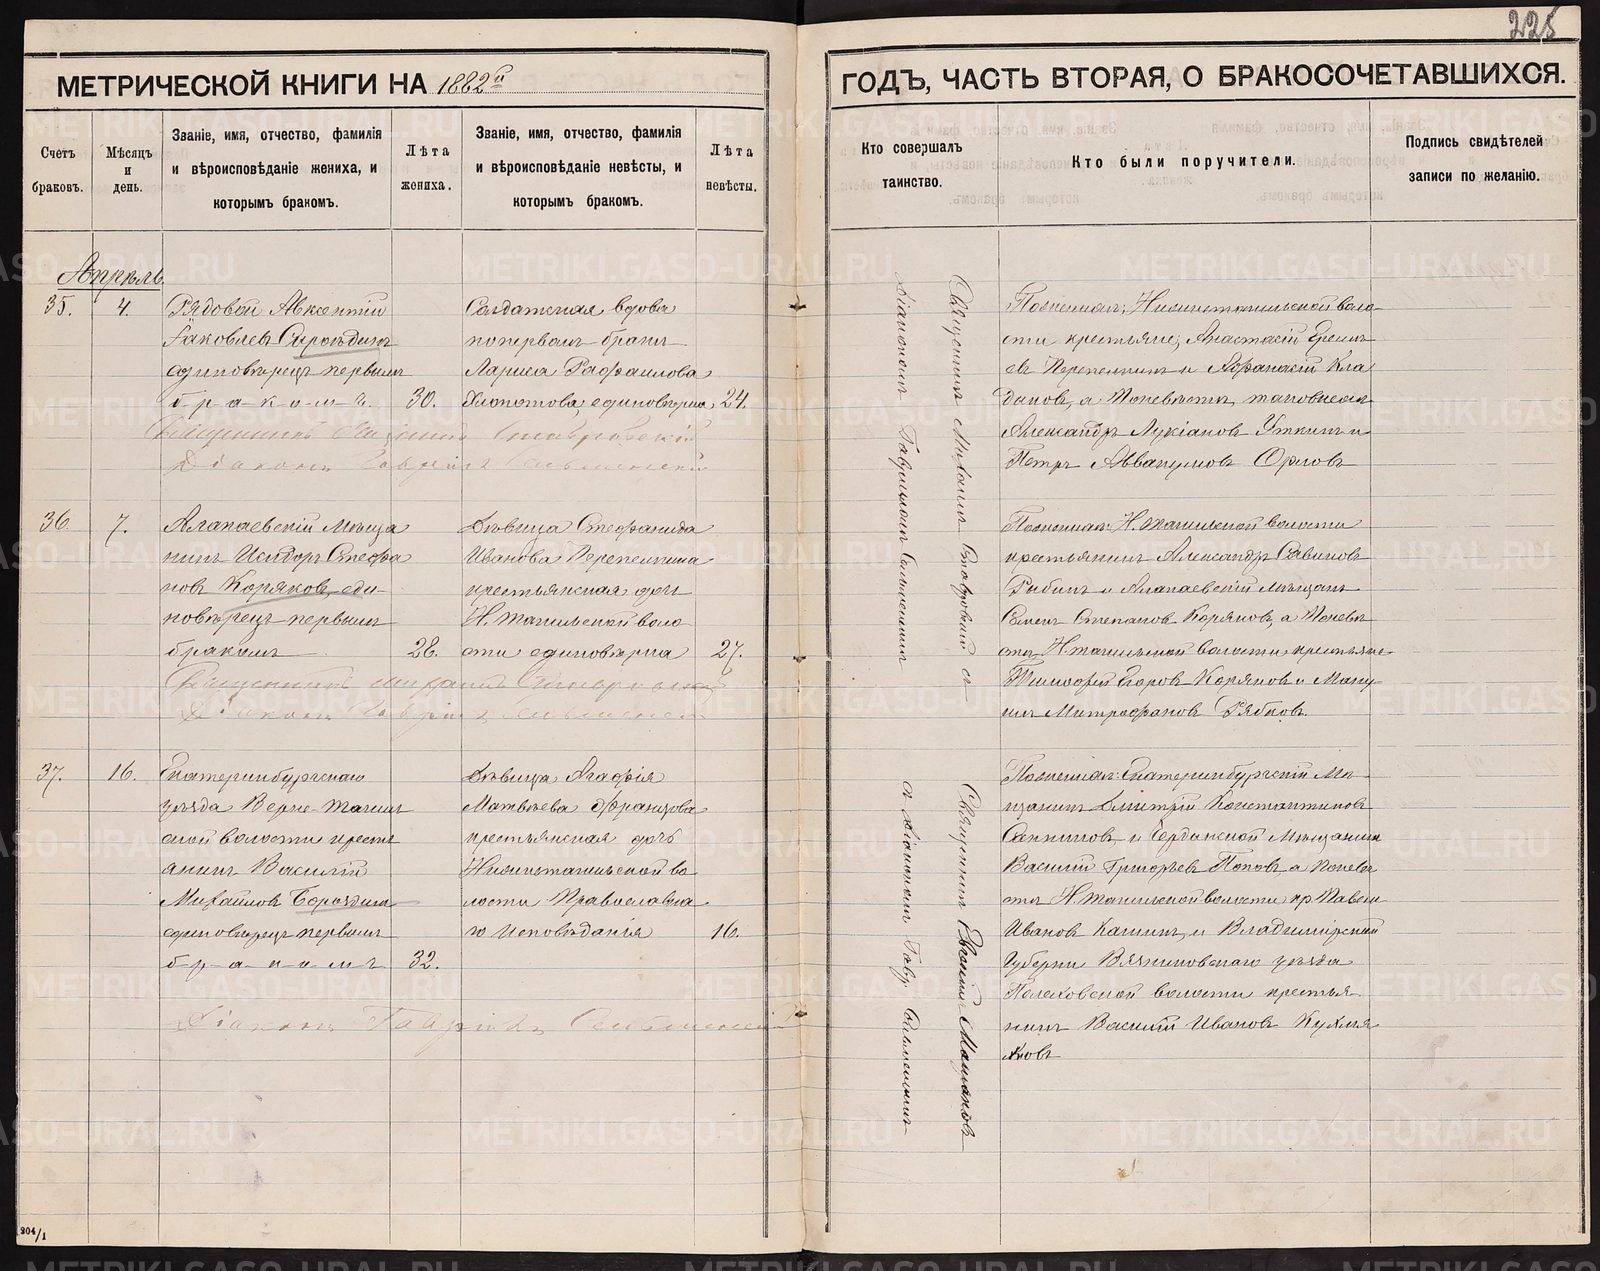 225
МЕТРИЧЕСКОЙ КНИГИ НА 1882й
ГОДЪ, ЧАСТЬ ВТОРАЯ, О БРАКОСОЧЕТАВШИХСЯ.
Счетъ браковъ.
Мѣсяцъ и день.
Званіе, имя, отчество, фамилія
и вѣроисповѣданіе жениха, и
которымъ бракомъ.
Лѣта жениха.
Званіе, имя, отчество, фамилія
и вѣроисповѣданіе невѣсты, и
которымъ бракомъ.
Лѣта невѣсты.
Кто совершалъ
таинство.
Кто были поручители.
Подпись свидѣтелей
записи по желанію.
Апрѣль
35.
4.
Рядовой Авксентій
Іаковлевъ
единовѣрецъ первымъ
бракомъ.
30.
Солдатская вдова
попервомъ бракѣ
Лариса Рафаилова
Хлопотова, единовѣрка,
24.
Священникъ Михаилъ Ставровскій съ
Діакономъ Гавріиломъ
По женихѣ: Нижнетагильской воло-
сти крестьяне; Анастасій Ереме-
евъ Перепелкинъ и Афанасій Кла
дановъ, а по невѣстѣ, таковые же
Александръ Лукіановъ Уткинъ и
Петръ Аввакумовъ Орловъ
Священникъ Михаилъ Ставровскій
Діаконъ Гавріилъ
36.
7.
Алапаевскій мѣща
нинъ Исидоръ Стефа
новъ Коряковъ, еди-
новѣрецъ первымъ
бракомъ
28.
Дѣвица Стефанида
Иванова Перепелкина
крестьянская дочь
Н. Тагильской воло
сти единовѣрка
27.
По женихѣ: Н. Тагильской волости
крестьянинъ Александръ Савиновъ
Рыбинъ и Алапаевскій мѣщанъ
Семенъ Степановъ Коряковъ, а по невѣ
стѣ, Н. Тагильской волости крестьяне
Тимофей Егоровъ Коряковъ и Маку
илъ Митрофановъ Рябковъ.
Священникъ Михаилъ Ставровскій
Діаконъ Гавріилъ
37.
16.
Екатеринбургскаго
уѣзда Верхъ-Тагиль
ской волости крестъ
янинъ Василій
Михаиловъ Бороздинъ
единовѣрецъ первымъ
бракомъ
32.
Дѣвица Агафія
Матвѣева Францова
крестьянская дочь
Нижнетагильской во
лости Православна
го исповѣданія
16.
Священникъ Евгеній
съ діакономъ Гавр.
По женихѣ: Екатеринбургскій Мѣ-
щанинъ Дмитрій Константиновъ
и Чердынской мѣщанинъ
Василій Григорьевъ Поповъ, а по невѣ
стѣ Н. Тагильской волости кр. Павелъ
Ивановъ Кашинъ, и Владимірской
Губерніи Вязниковскаго уѣзда
волости крестья
нинъ Василій Ивановъ Кухля
ковъ
Діаконъ Гавріилъ
204/1
METRIKI.GASO-URAL.RU